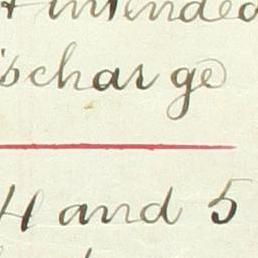 intended
ischarge
4 and 5